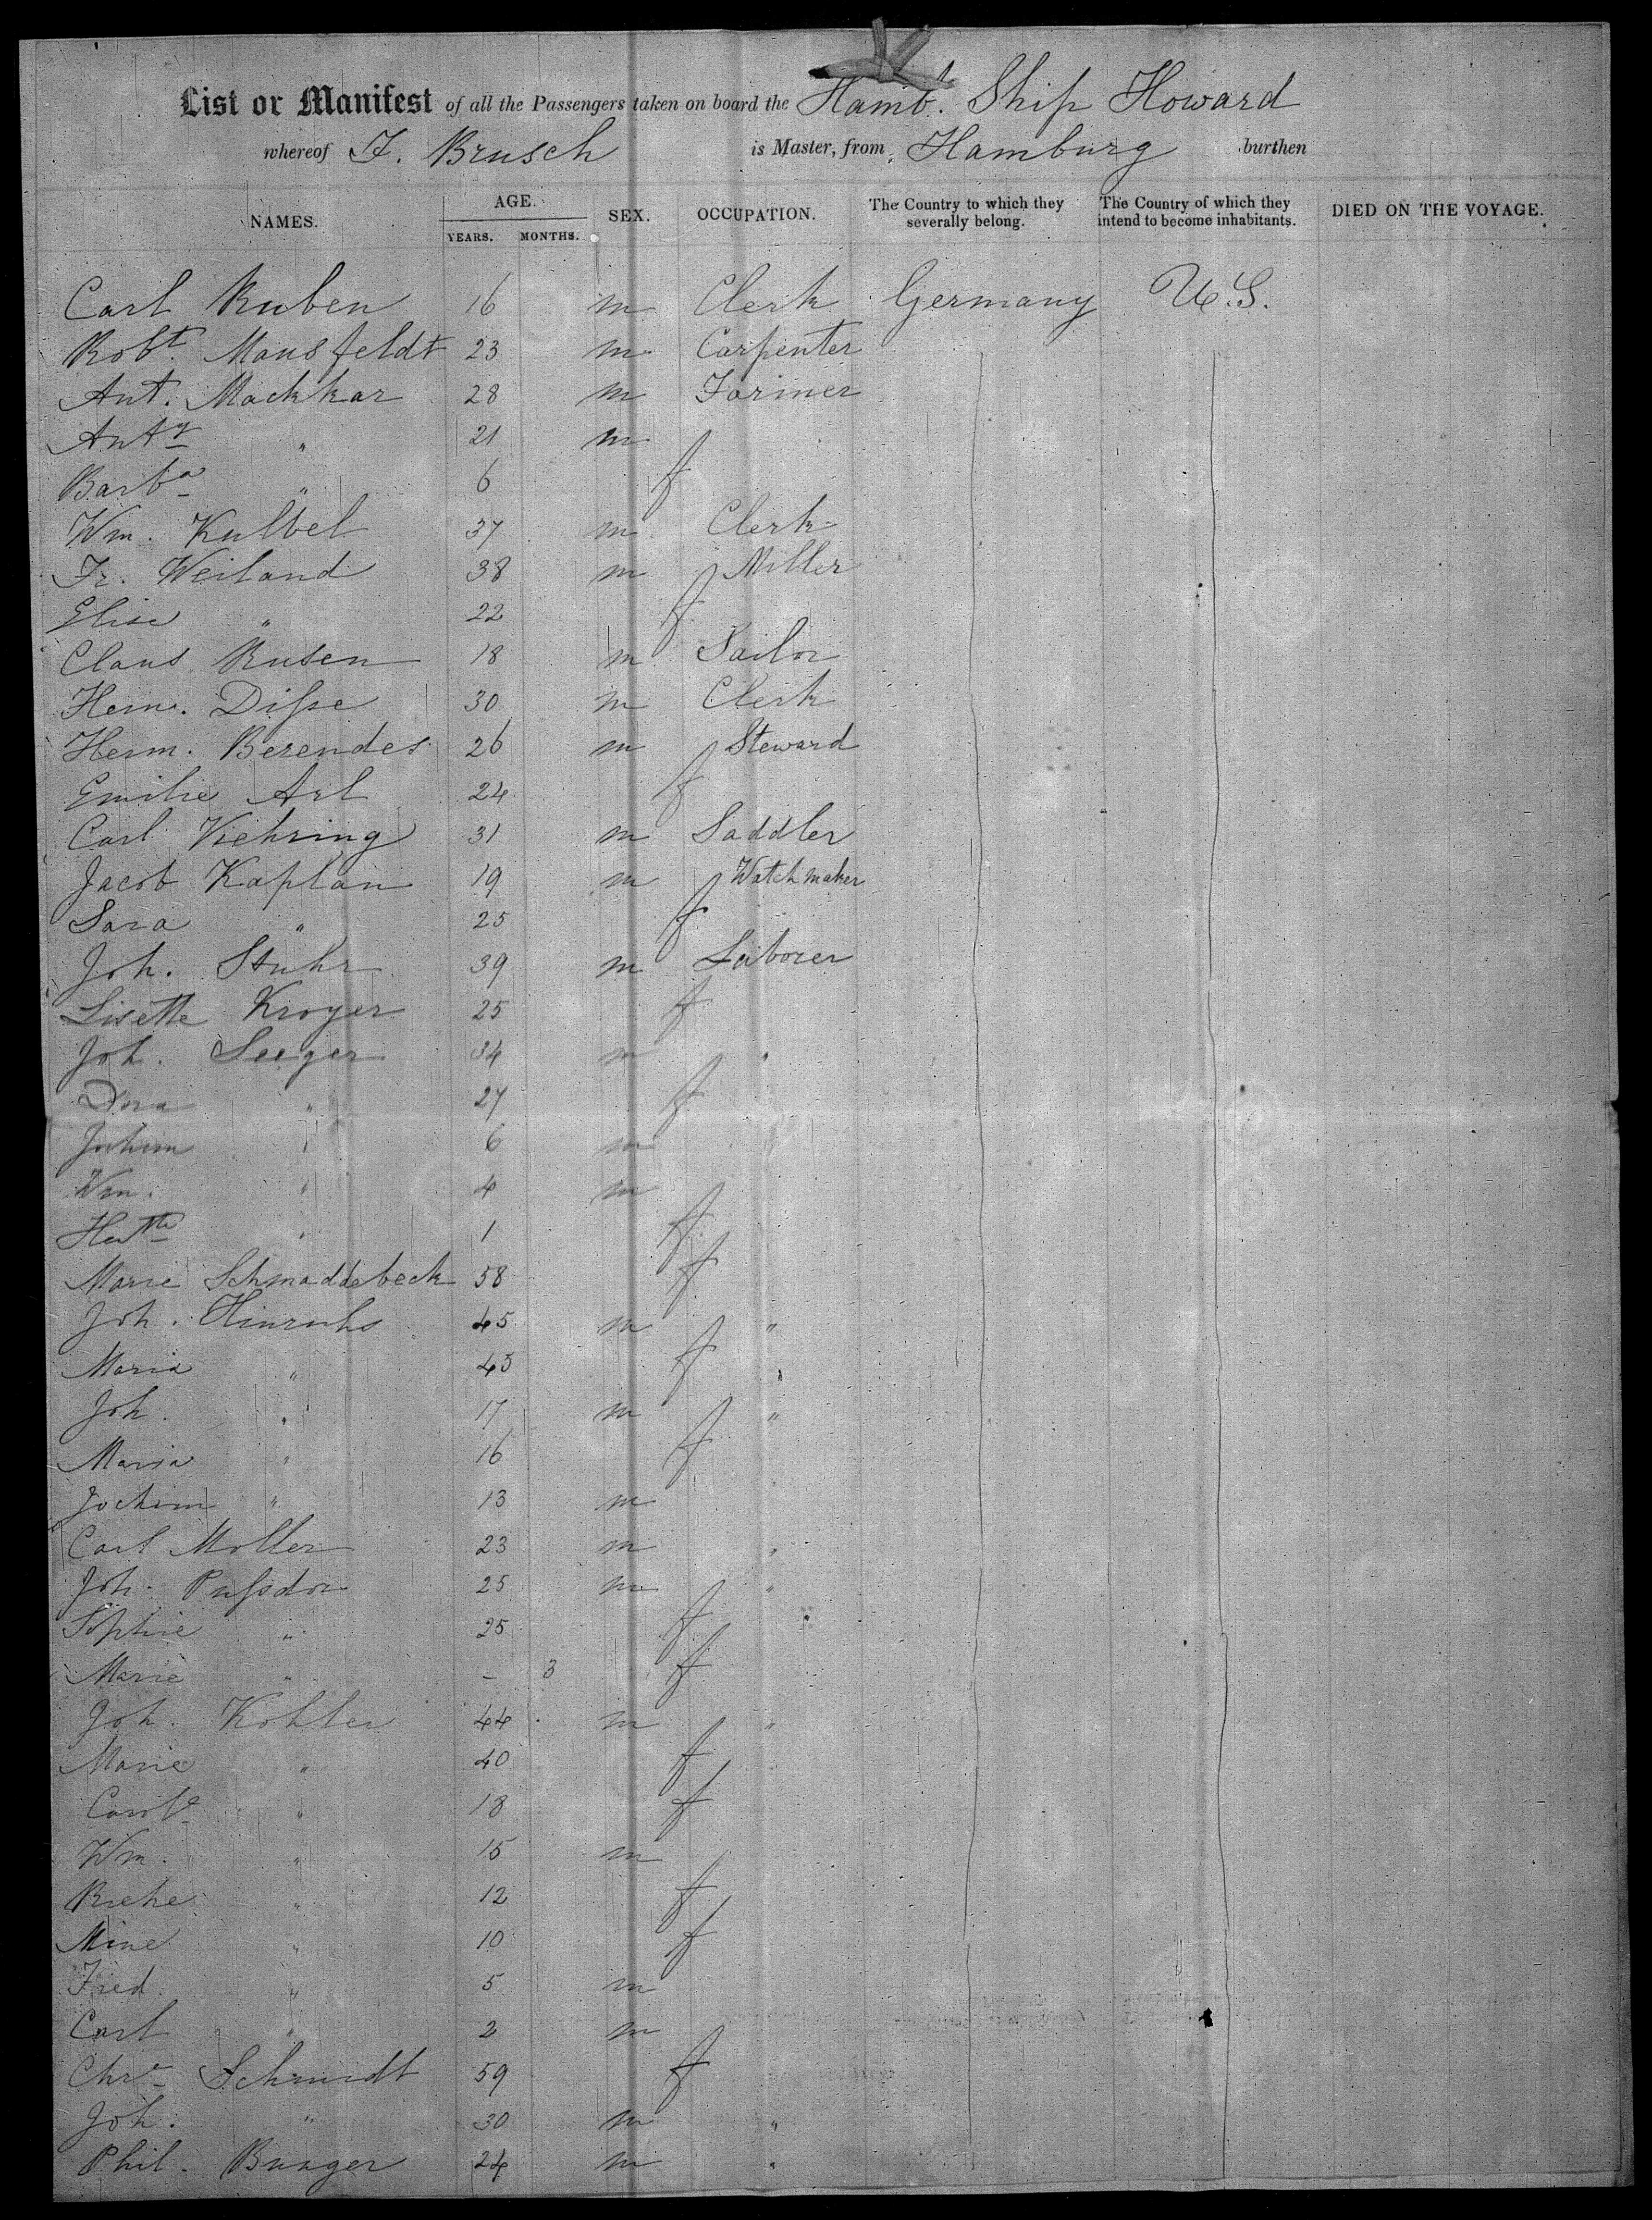 List or Manifest of all the Passengers taken on board the Hamb. Ship Howard
whereof F. Brusch is Master, from Hamburg burthen
NAMES. AGE. YEARS. MONTHS. SEX. OCCUPATION. The Country to which they severally belong. The Country of which they intend to become inhabitants. DIED ON THE VOYAGE.
Carl Ruben 16 m Clerk Germany U.S.
Robt. Mansfeldt 23 m Carpenter
Ant. Mackkar 28 m Farmer
Anty " 21 m
Barba " 6 f
Wm. Kulbel 37 m Clerk
Fr. Weiland 38 m Miller
Elise " 22 f
Claus Rusen 18 m Sailor
Herm. Disse 30 m Clerk
Herm. Berendes 26 m Steward
Emilie Arl 24 f
Carl Viehring 31 m Saddler
Jacob Kaplan 19 m Watchmaker
Sara " 25 f
Joh. Stuhr 39 m Laborer
Lisette Kroger 25 f
Joh. Seeger 34 m "
Dora " 27 f
Jochim " 6 m
Wm. " 4 m
" 1 f
Marie Schmaddebeck 58 f
Joh. Hinrichs 45 m "
Maria " 45 f "
Joh. " 17 m "
Maria " 16 f
Jochim " 13 m
Carl Moller 23 m "
Joh. 25 m "
Sophie " 25 f
Marie " - 3 f
Joh. Kohler 44 m "
Marie " 40 f
Carole " 18 f
Wm. " 15 m
Rieke " 12 f
Mine " 10 f
Fred. " 5 m
Carl " 2 m
Chre Schmidt 59 f
Joh. " 30 m "
Phil. Bunger 24 m "